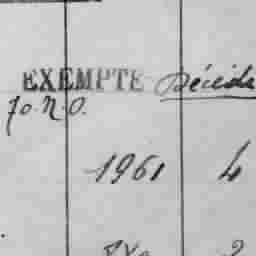 EXEMPTE Décédé
Jo. N. O.
1961 4
2